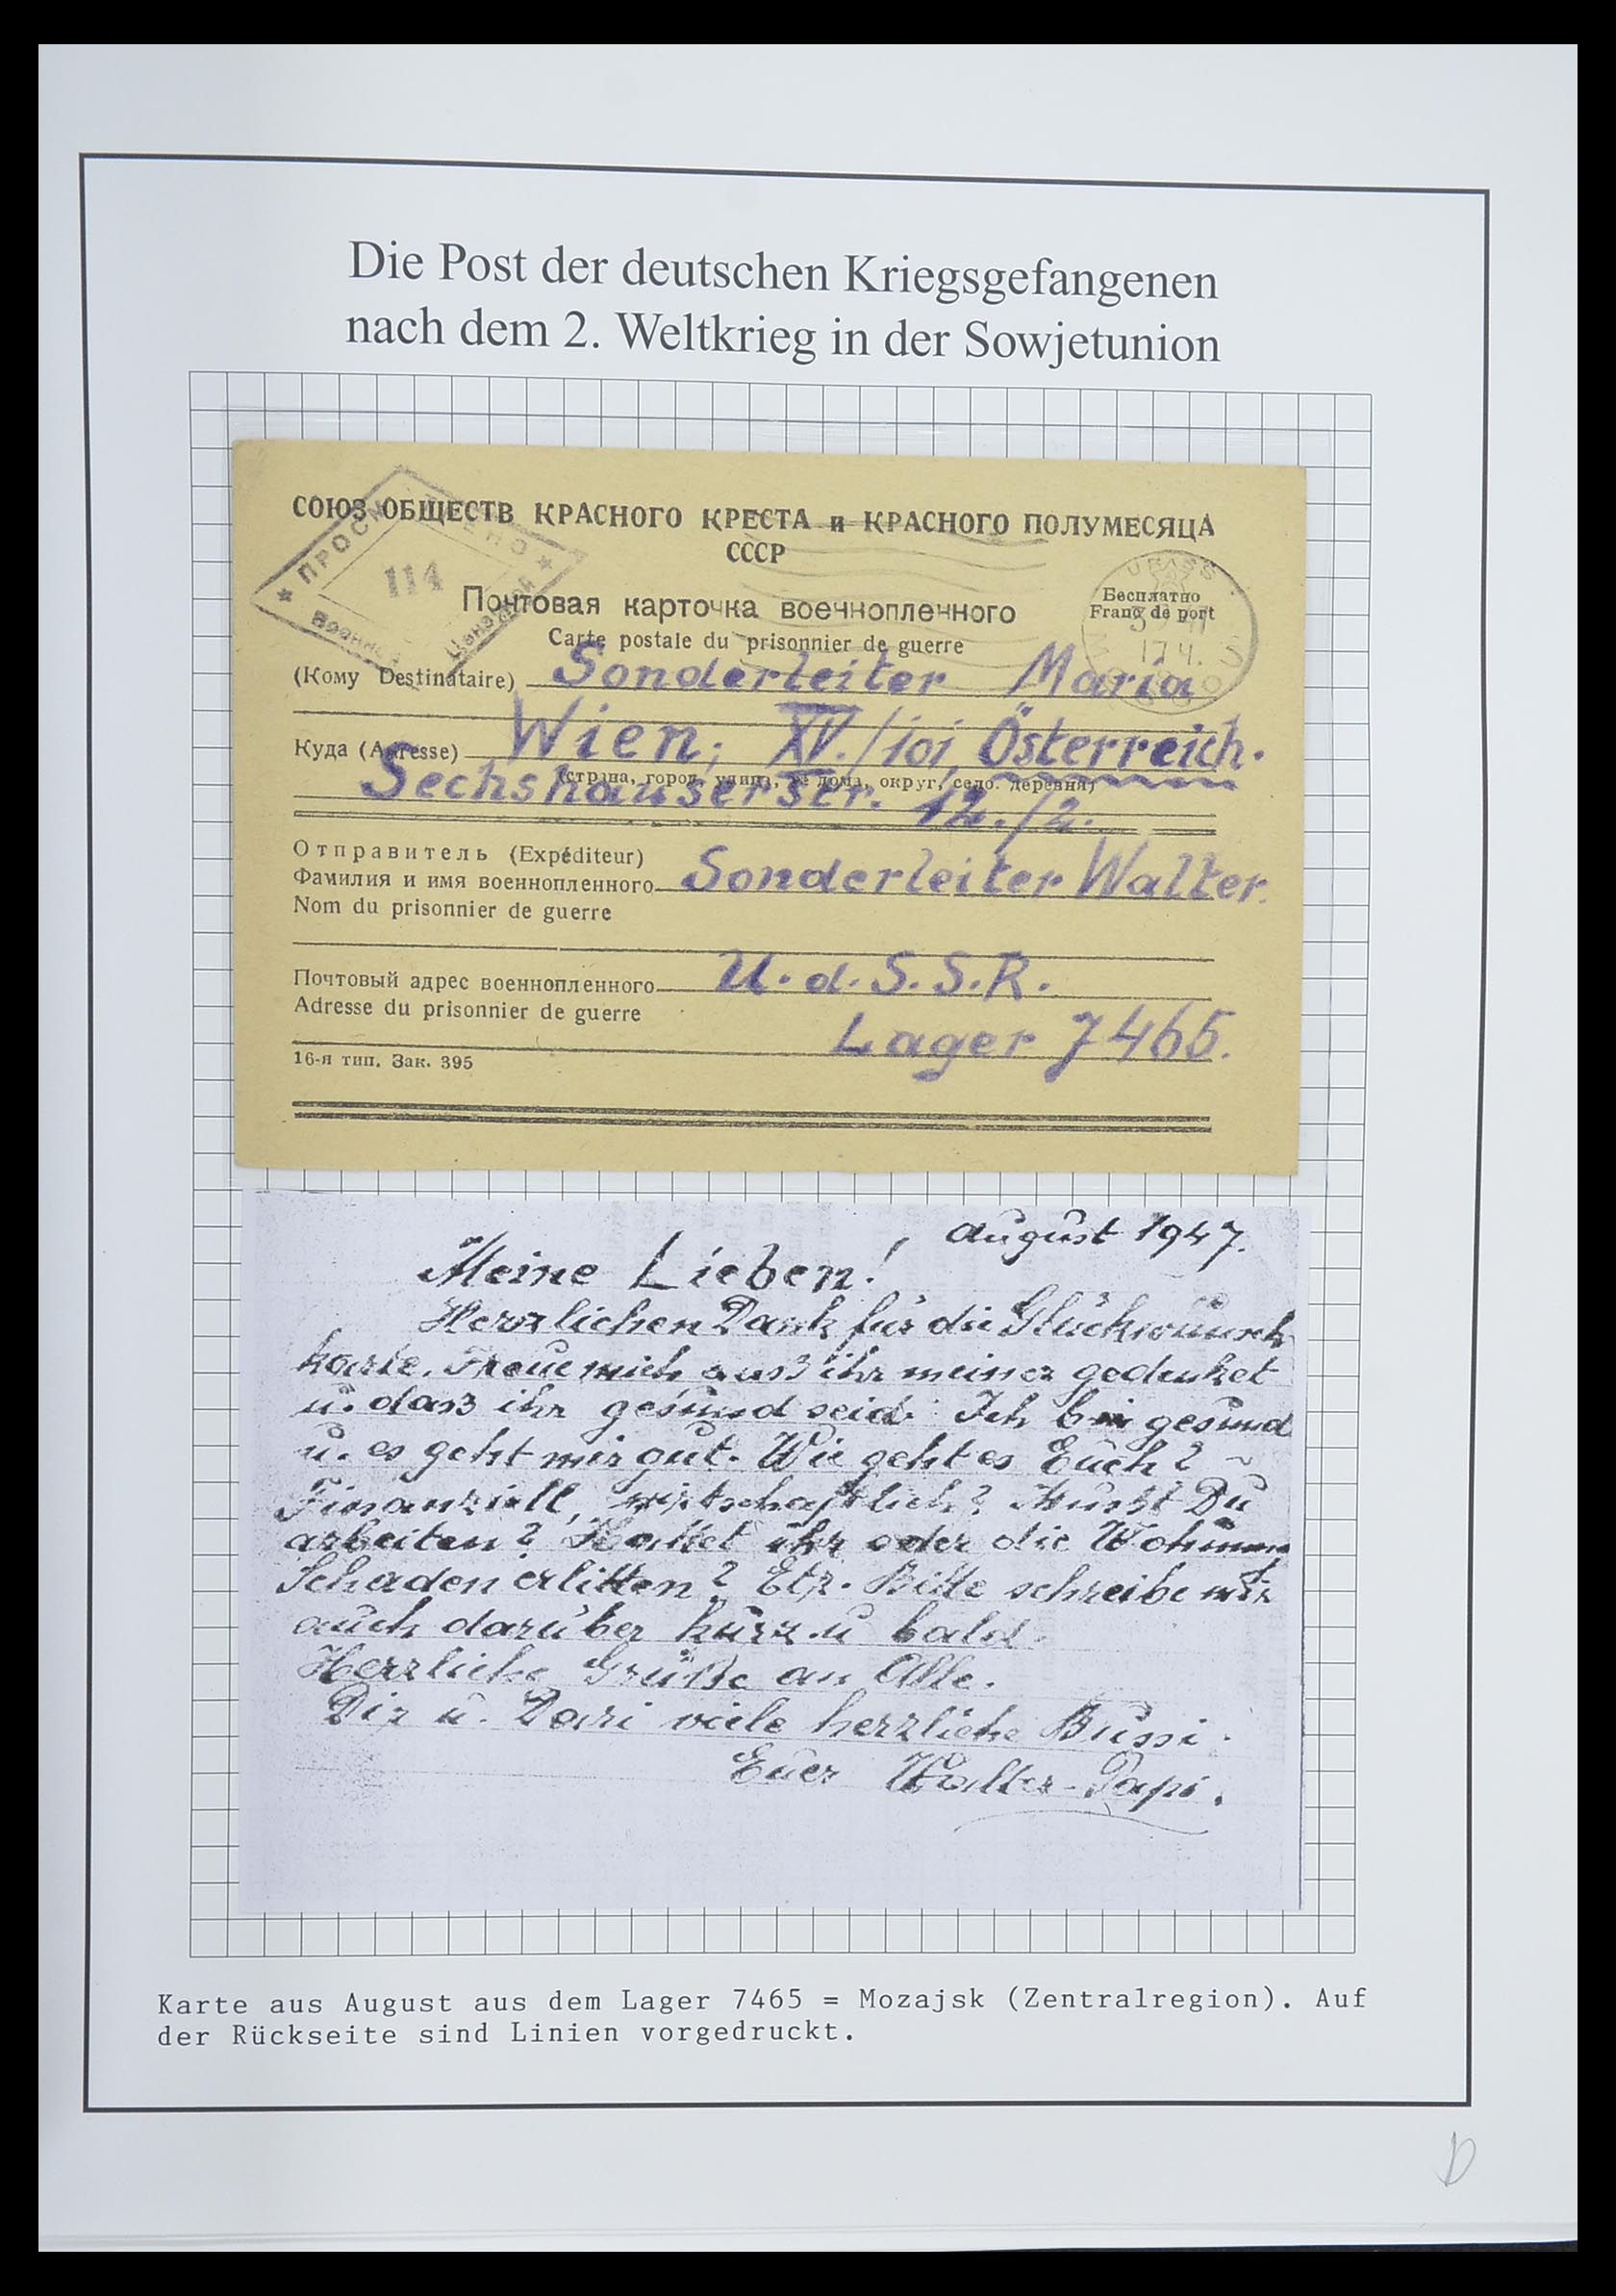 Die Post der deutschen Kriegsgefangenen
nach dem 2. Weltkrieg in der Sowjetunion
СОЮЗ ОБЩЕСТВ КРАСНОГО КРЕСТА и КРАСНОГО ПОЛУМЕСЯЦА
СССР
114
Почтовая карточка военнопленного
Бесплатно
Franc de port
Carte postale du prisonnier de guerre
(Кому Destinataire) Sonderleiter Maria
Куда (Adresse) Wien, XV./101, Österreich.
(страна, город, улица, № дома, округ, село. деревня)
Sechshauserstr. 12./2.
Отправитель (Expéditeur)
Фамилия и имя военнопленного Sonderleiter Walter.
Nom du prisonnier de guerre
Почтовый адрес военнопленного U.d.S.S.R.
Adresse du prisonnier de guerre
Lager 7465.
16-я тип. Зак. 395
August 1947.
Meine Lieben!
Herzlichen Dank für die Glückwunsch
karte. Freue mich ihr meiner gedenket
u. daß ihr gesund seid. Ich bin gesund
u. es geht mir gut. Wie geht es Euch?
Finanziell, wirtschaftlich? Mußt Du
arbeiten? Hattet ihr oder die Wohnung
Schaden erlitten? Etz. Bitte schreibe mir
auch darüber kurz u bald.
Herzliche Grüße an Alle.
Dir u. viele herzliche Bussi.
Euer Walter-Papi.
Karte aus August aus dem Lager 7465 = Mozajsk (Zentralregion). Auf
der Rückseite sind Linien vorgedruckt.
D